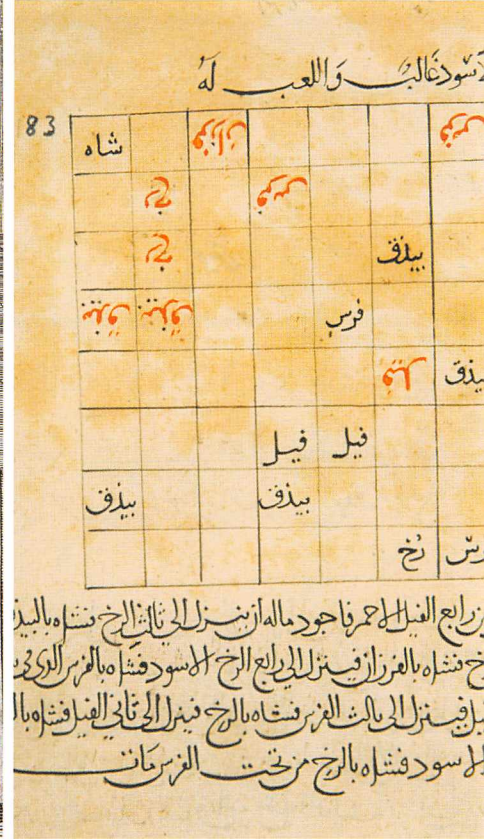 لاسود غالب واللعب له
83
شاه فرزان فرس
رخ فرس
رخ بيذق
بيذق بيذق فرس
فيل بيذق
فيل فيل
بيذق بيذق
رخ
رابع الفيل الاحمر فاجود ماله ان ينزل الي ثالث الرخ فشاه
فشاه بالفرزان فينزل الي رابع الرخ الاسود فشاه بالفرس الذي
فينزل الي ثالث الفرس فشاه بالرخ فينزل الي ثاني الفيل فشاه
الاسود فشاه بالرخ من تحت الفرس مات